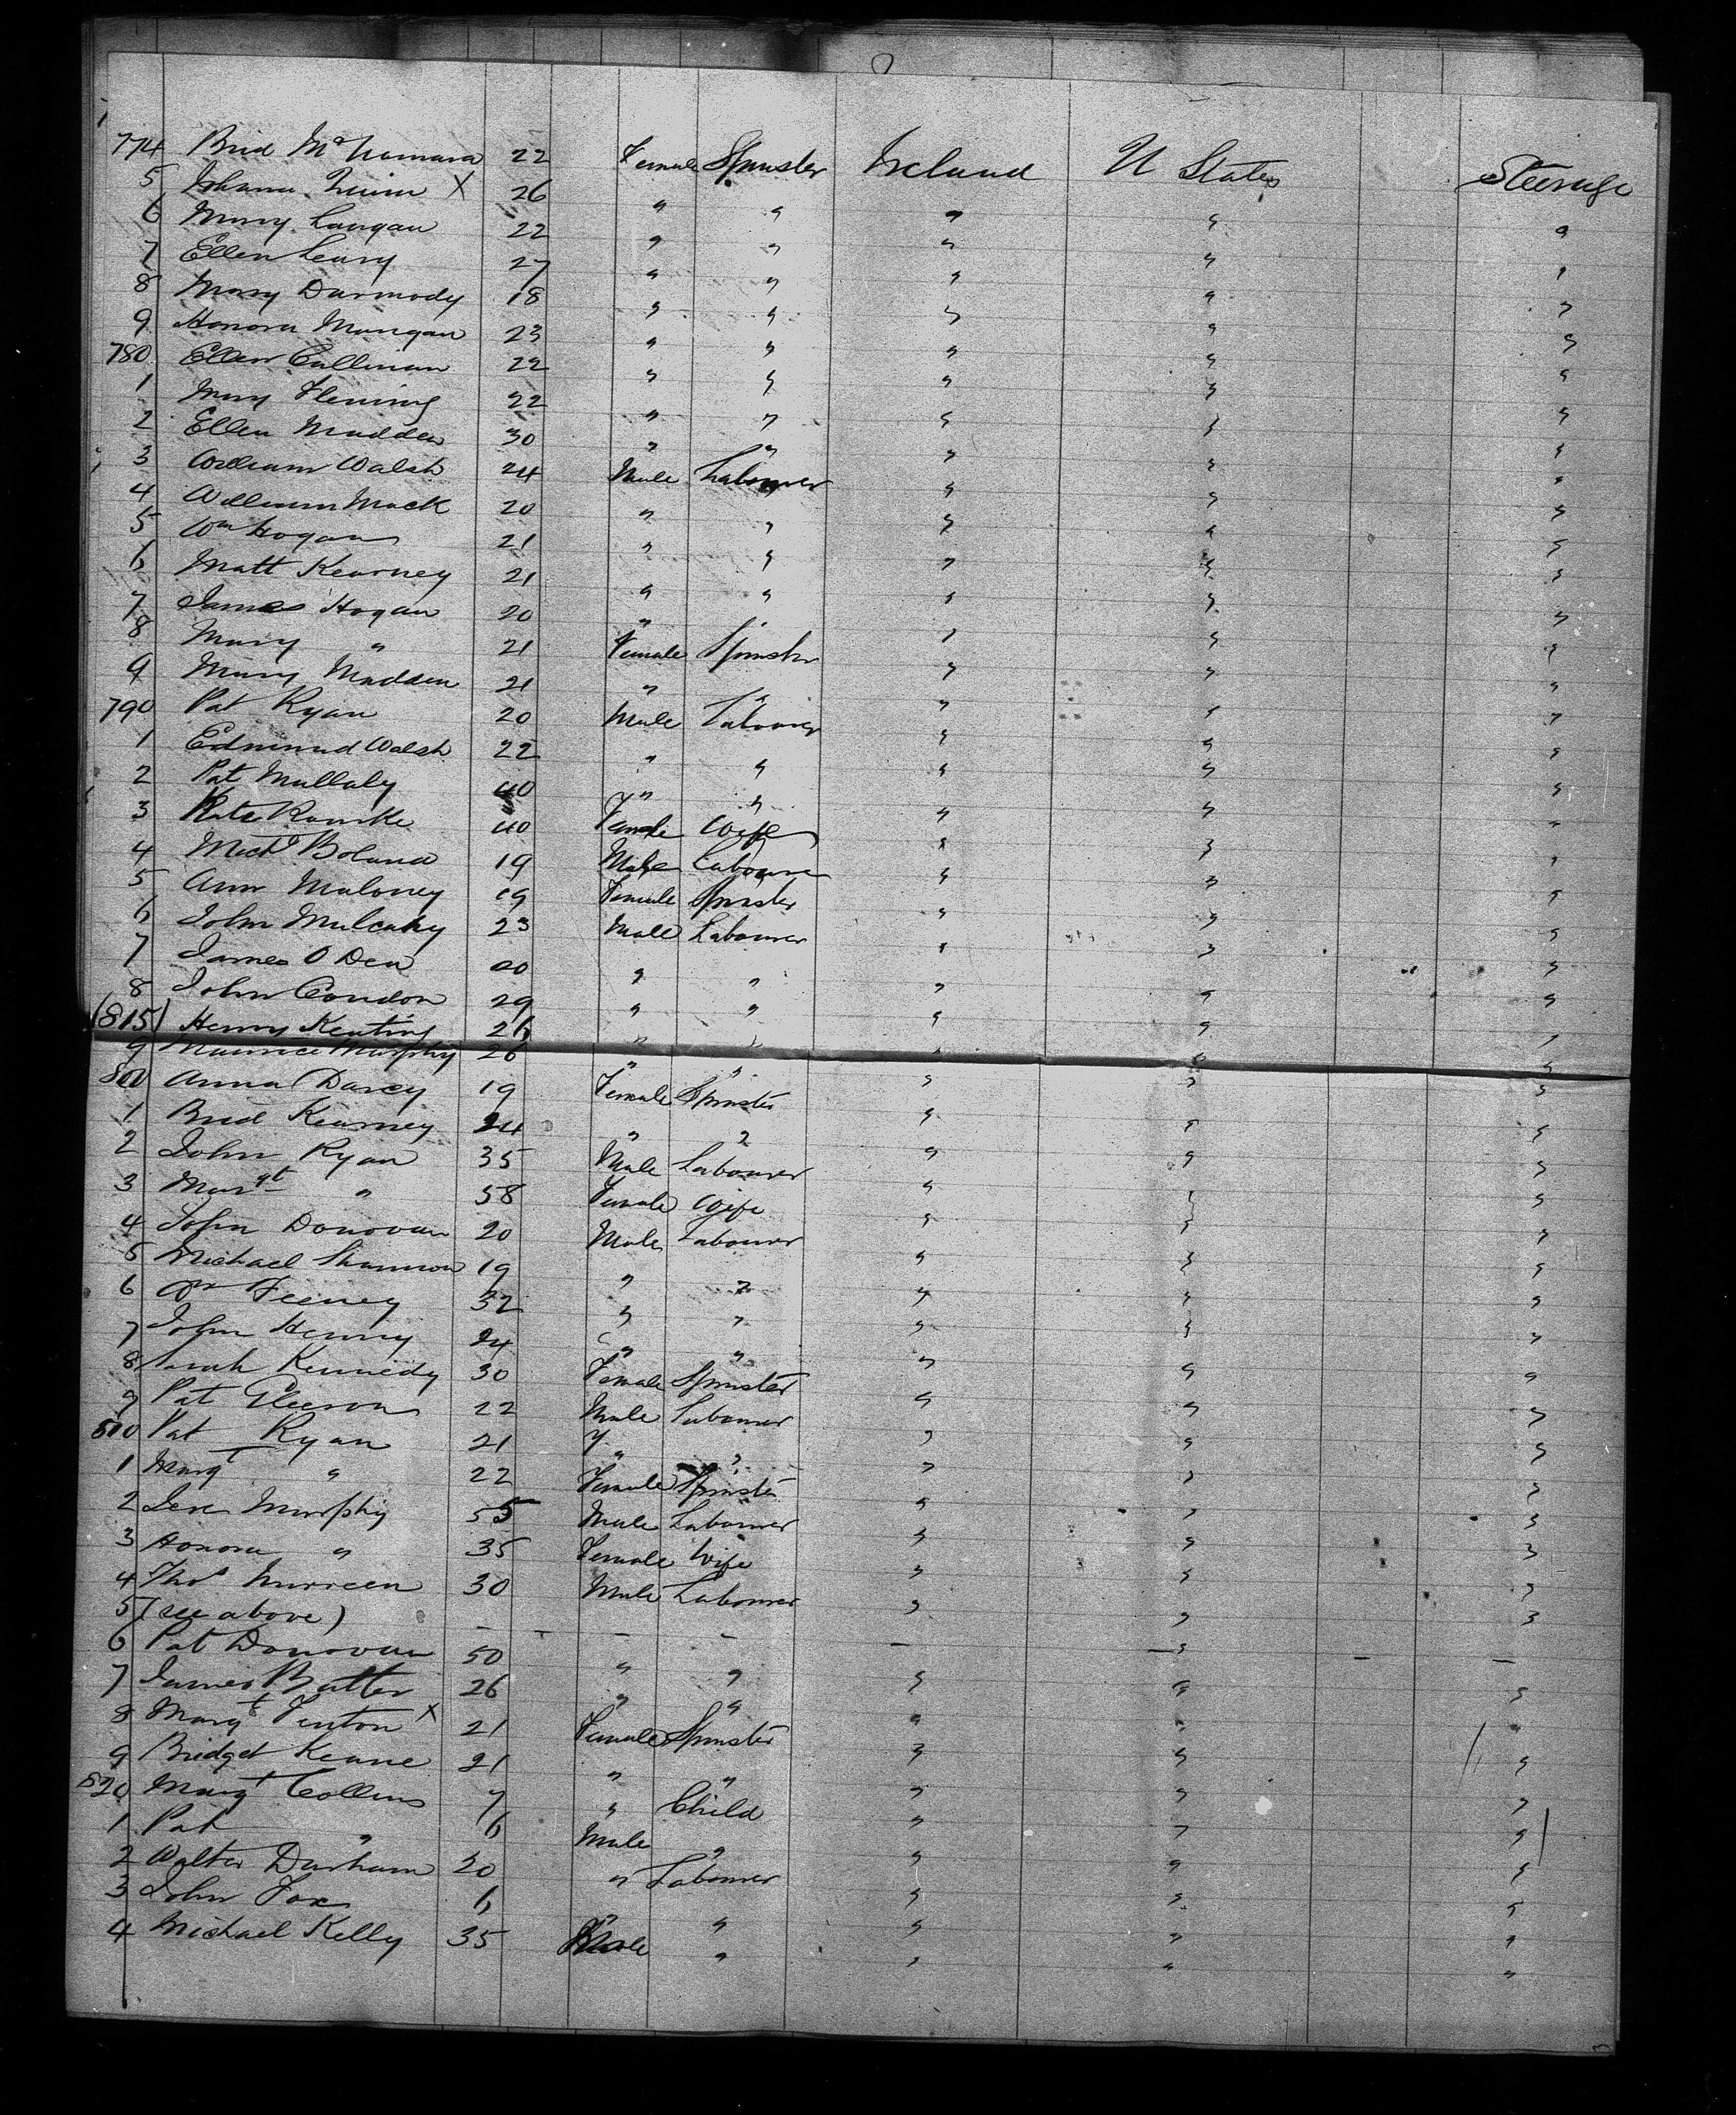 774 Brid McNamara 22 Female Spinster Ireland U States Steerage
5 Johanna Quinn X 26 " " " " "
6 Mary Langan 22 " " " " "
7 Ellen Leary 27 " " " " "
8 Mary Darmody 18 " " " " "
9 Honora Mangan 23 " " " " "
780 Ellen Callinan 22 " " " " "
1 Mary Fleming 22 " " " " "
2 Ellen Madden 30 " " " " "
3 William Walsh 24 Male Labourer " " "
4 William Mack 20 " " " " "
5 Wm Hogan 21 " " " " "
6 Matt Kearney 21 " " " " "
7 James Hogan 20 " " " "
8 Mary " 21 Female Spinster " " "
9 Mary Madden 21 " " " " "
790 Pat Ryan 20 Male Labourer " " "
1 Edmund Walsh 22 " " " " "
2 Pat Mullaly 40 " " " " "
3 Kate Rourke 40 Female Wife " " "
4 Michl Boland 19 Male Labourer " " "
5 Ann Maloney 19 Female Spinster " " "
6 John Mulcahy 23 Male Labourer " " "
7 James O Dea 20 " " " " "
8 John Condon 29 " " " " "
(815) Henry Keating 26 " " " " "
9 Maurice Murphy 26 " " " " "
800 Anna Darcy 19 Female Spinster " " "
1 Brid Kearney 24 " " " " "
2 John Ryan 35 Male Labourer " " "
3 Margt " 58 Female Wife " " "
4 John Donovan 20 Male Labourer " " "
5 Michael Shannon 19 " " " " "
6 Wm Feeney 32 " " " " "
7 John Henry 24 " " " " "
8 Sarah Kennedy 30 Female Spinster " " "
9 Pat Gleeson 22 Male Labourer " " "
810 Pat Ryan 21 " " " " "
1 Margt " 22 Female Spinster " " "
2 Jere Murphy 55 Male Labourer " " "
3 Honora " 35 Female Wife " " "
4 Thos 30 Male Labourer " " "
5 (see above) - - - - - - - -
6 Pat Donovan 50 " " " " "
7 James Butler 26 " " " " "
8 Margt Fenton X 21 Female Spinster " " "
9 Bridget Keane 21 " " " " "
820 Margt Collins 7 " Child " " "
1 Pat " 6 Male " " " "
2 Walter Durham 20 " Labourer " " "
3 John Fox 6 " " " " "
4 Michael Kelly 35 Male " " " "